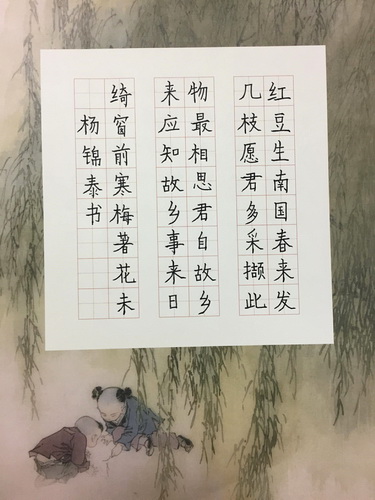 红豆生南国春来发
几枝愿君多采撷此
物最相思君自故乡
来应知故乡事来日
绮窗前寒梅著花未
杨锦泰书